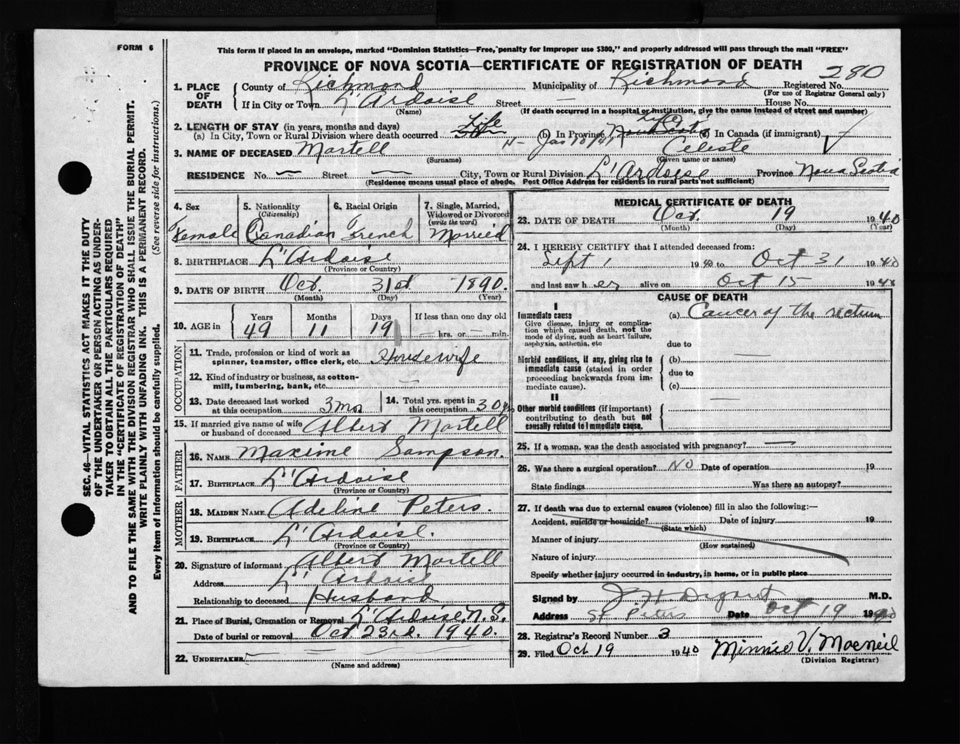 FORM 6
This form if placed in an envelope, marked "Dominion Statistics—Free, penalty for improper use $300," and properly addressed will pass through the mail "FREE"
PROVINCE OF NOVA SCOTIA—CERTIFICATE OF REGISTRATION OF DEATH
280
1. PLACE OF DEATH County of Richmond Municipality of Richmond Registered No.
(For use of Registrar General only)
If in City or Town L'Ardoise Street — House No.
(Name) (If death occurred in a hospital or institution, give the name instead of street and number)
2. LENGTH OF STAY (in years, months and days)
(a) In City, Town or Rural Division where death occurred Life (b) In Province Life (c) In Canada (if immigrant)
3. NAME OF DECEASED Martell Celeste
(Surname) (Given name or names)
RESIDENCE No. — Street — City, Town or Rural Division L'Ardoise Province Nova Scotia
(Residence means usual place of abode. Post Office Address for residents in rural parts not sufficient)
4. Sex
Female
5. Nationality
(Citizenship)
Canadian
6. Racial Origin
French
7. Single, Married,
Widowed or Divorced
(write the word)
Married
8. BIRTHPLACE L'Ardoise
(Province or Country)
9. DATE OF BIRTH Oct. 31st 1890.
(Month) (Day) (Year)
10. AGE in Years Months Days If less than one day old
49 11 19 — hrs. or — min.
OCCUPATION
11. Trade, profession or kind of work as
spinner, teamster, office clerk, etc. Housewife
12. Kind of industry or business, as cotton-
mill, lumbering, bank, etc. —
13. Date deceased last worked
at this occupation 3 mos
14. Total yrs. spent in
this occupation 30 yrs
15. If married give name of wife
or husband of deceased Albert Martell
FATHER
16. NAME Maxime Sampson.
17. BIRTHPLACE L'Ardoise
(Province or Country)
MOTHER
18. MAIDEN NAME Adeline Peters.
19. BIRTHPLACE L'Ardoise.
(Province or Country)
20. Signature of informant Albert Martell
Address L'Ardoise
Relationship to deceased Husband
21. Place of Burial, Cremation or Removal L'Ardoise, N.S.
Date of burial or removal Oct. 23rd. 1940.
22. UNDERTAKER
(Name and address)
MEDICAL CERTIFICATE OF DEATH
23. DATE OF DEATH Oct. 19 1940
(Month) (Day) (Year)
24. I HEREBY CERTIFY that I attended deceased from:
Sept 1 1940 to Oct 31 1940
and last saw her alive on Oct 15 1940
CAUSE OF DEATH
I
Immediate cause
Give disease, injury or complica-
tion which caused death, not the
mode of dying, such as heart failure,
asphyxia, asthenia, etc
(a) Cancer of the rectum
due to
Morbid conditions, if any, giving rise to
immediate cause (stated in order
proceeding backwards from im-
mediate cause).
(b) —
due to
(c) —
II
Other morbid conditions (if important)
contributing to death but not
causally related to immediate cause.
—
25. If a woman, was the death associated with pregnancy? —
26. Was there a surgical operation? NO Date of operation 19
State findings Was there an autopsy?
27. If death was due to external causes (violence) fill in also the following:—
Accident, suicide or homicide? Date of injury 19
(State which)
Manner of injury
(How sustained)
Nature of injury
Specify whether injury occurred in industry, in home, or in public place
Signed by M.D.
Address St. Peters Date Oct 19 1940
28. Registrar's Record Number 3
29. Filed Oct 19 1940 Minnie V. Macneil
(Division Registrar)
SEC. 46—VITAL STATISTICS ACT MAKES IT THE DUTY
OF THE UNDERTAKER OR PERSON ACTING AS UNDER-
TAKER TO OBTAIN ALL THE PARTICULARS REQUIRED
IN THE "CERTIFICATE OF REGISTRATION OF DEATH"
AND TO FILE THE SAME WITH THE DIVISION REGISTRAR WHO SHALL ISSUE THE BURIAL PERMIT.
WRITE PLAINLY WITH UNFADING INK. THIS IS A PERMANENT RECORD.
Every item of information should be carefully supplied. (See reverse side for instructions.)